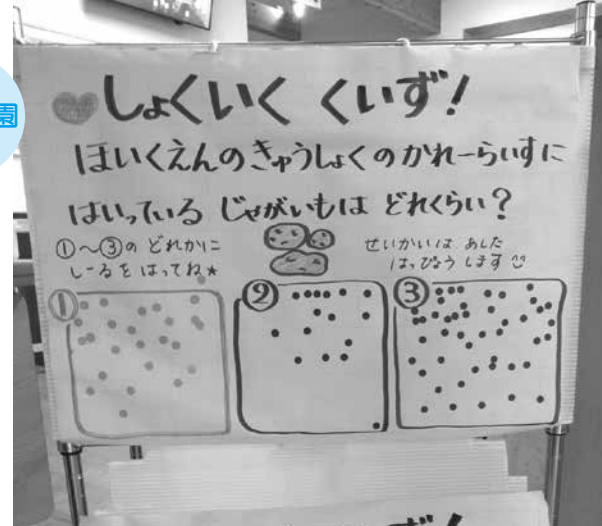 園
しょくいく くいず!
ほいくえんのきゅうしょくのかれーらいすに
はいっている じゃがいもは どれくらい?
①〜③の どれかに
しーるを はってね★
せいかいは あした
はっぴょう します
①
②
③
ず!